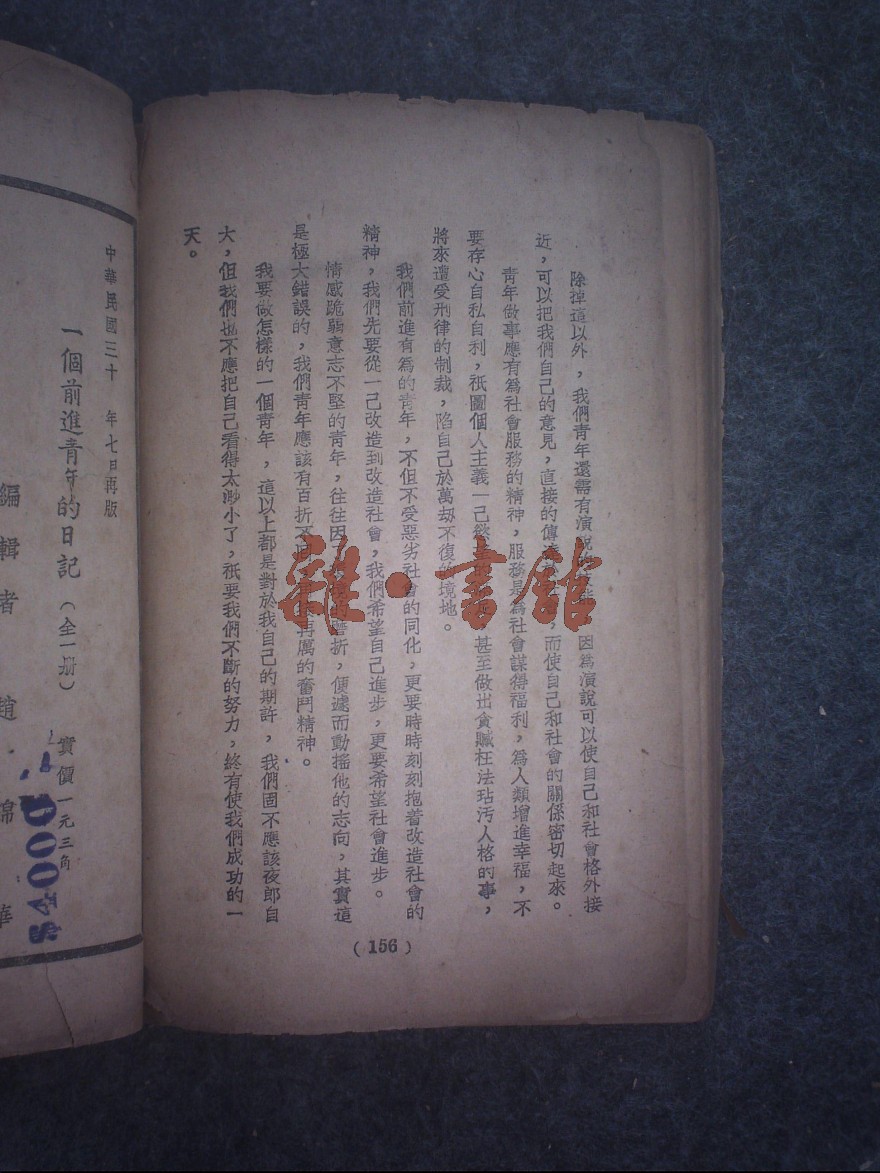 除掉這以外，我們青年還需有演說因爲演說可以使自己和社會格外接
近，可以把我們自己的意見，直接的傳，而使自己和社會的關係密切起來。
青年做事應有爲社會服務的精神，服務是爲社會謀得福利，爲人類增進幸福，不
要存心自私自利，祇圖個人主義一己甚至做出貪贓枉法玷汚人格的事，
將來遭受刑律的制裁，陷自己於萬劫不復的境地。
我們前進有爲的青年，不但不受惡劣社會的同化，更要時時刻刻抱着改造社會的
精神，我們先要從一己改造到改造社會，我們希望自己進步，更要希望社會進步。
情感脆弱意志不堅的青年，往往因折，便遽而動搖他的志向，其實這
是極大錯誤的，我們青年應該有百折不再厲的奮鬥精神。
我要做怎樣的一個青年，這以上都是對於我自己的期許，我們固不應該夜郎自
大，但我們也不應把自己看得太渺小了，祇要我們不斷的努力，終有使我們成功的一
天。
(156)
雜·書館
中華民國三十 年七日再版
一個前進青年的日記（全一册）實價一元三角
編輯者 趙 錦 華